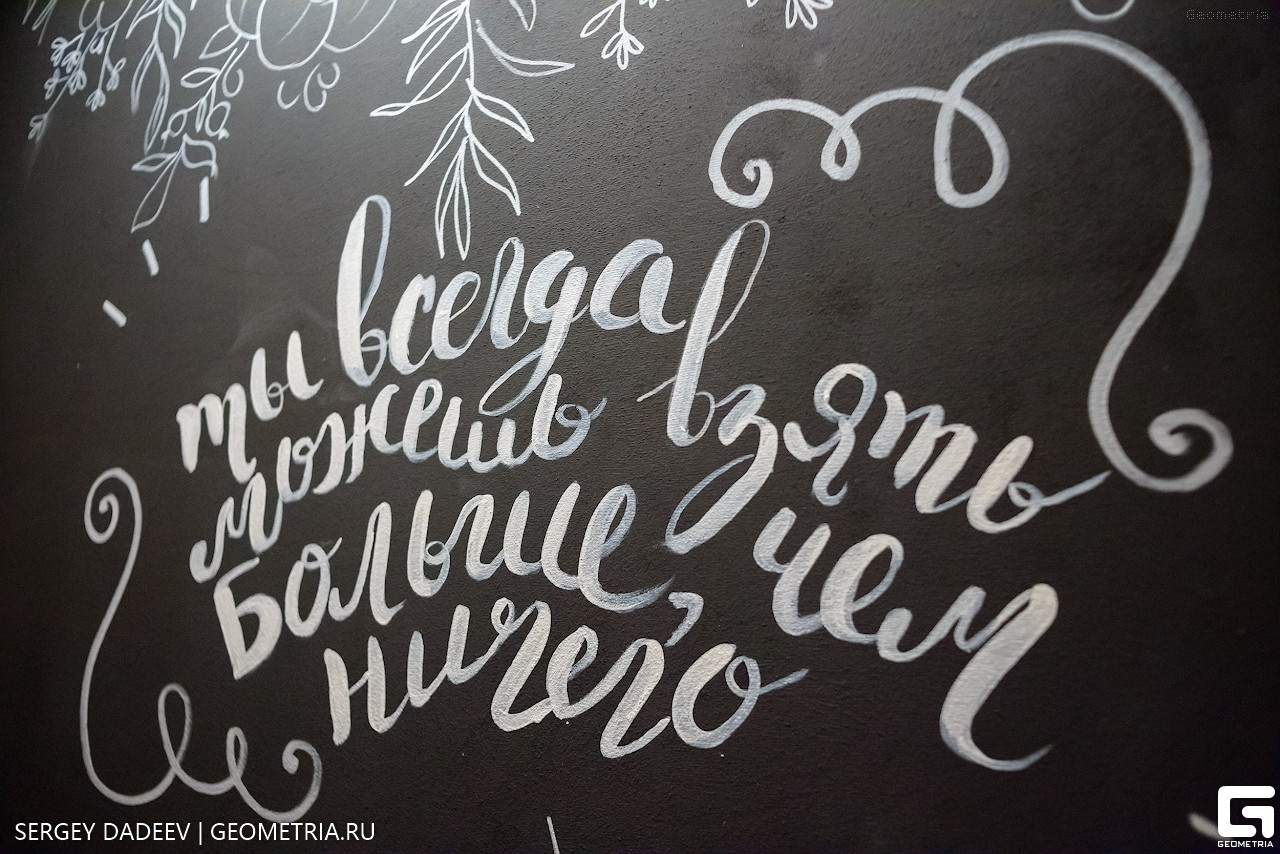 Geometria
ты всегда
можешь взять
Больше, чем
ничего
SERGEY DADEEV | GEOMETRIA.RU
GEOMETRIA